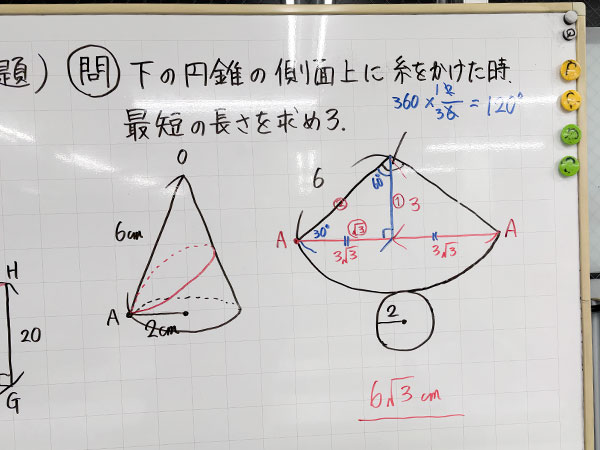 題) 問 下の円錐の側面上に糸をかけた時、
最短の長さを求めろ.
360 × 12/36 = 120°
O
6cm
A
2cm
H
20
G
6
60°
②
①
3
30°
√3
A
A
3√3
3√3
2
6√3 cm